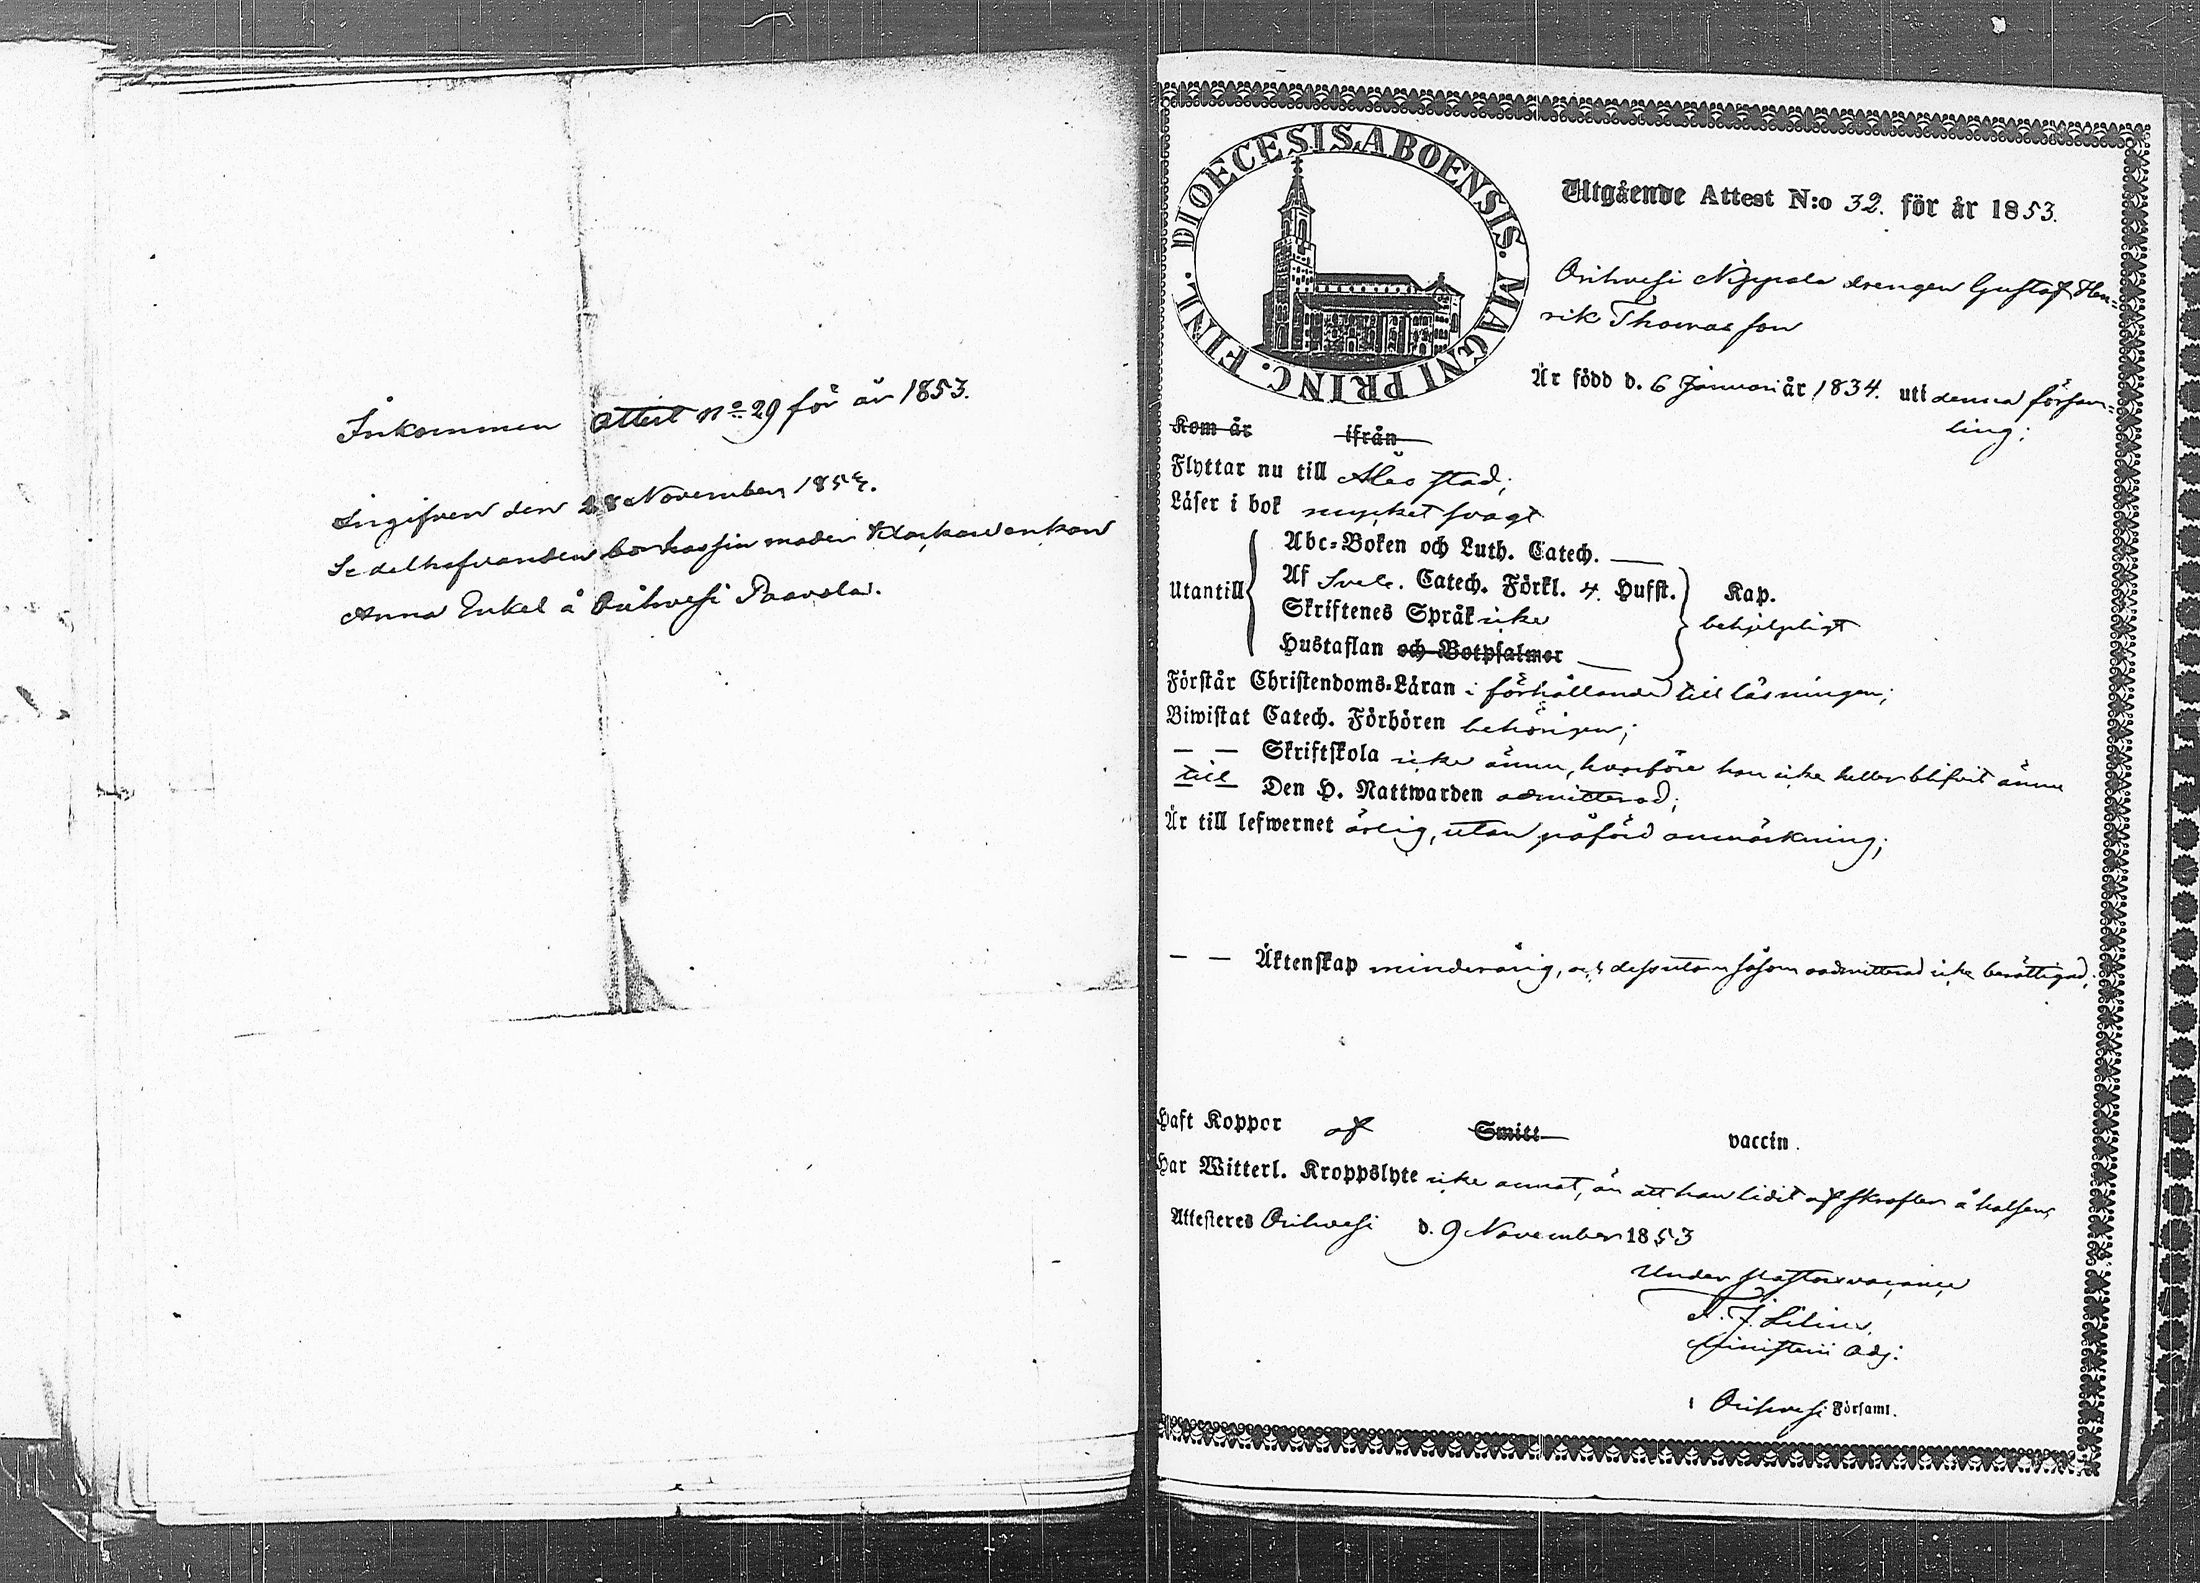 Inkommen Attest No 29 för år 1853.
Ingifven den 28 November 1853.
Sedelhafvanden bor hos sin moder Klockareenkan
Anna Enkel å Orihvesi Paavola.
DIOECESIS ABOENSIS. MAGNI PRINC. FINL.
Utgående Attest N:o 32. för år 1853.
Orihvesi Nippala drengen Gustaf Hen-
rik Thomasson
Är född d. 6 Januari år 1834. uti denna försam-
ling;
Kom år ifrån
Flyttar nu till Åbo stad;
Läser i bok mycket svagt
Utantill
Abc-Boken och Luth. Catech. —
Af Sveb. Catech. Förkl. 4. Hufst. Kap.
Skriftenes Språk icke behjelpligt
Hustaflan och Botpsalmer —
Förstår Christendoms-Läran i förhållande till läsningen;
Biwistat Catech. Förhören behörigen;
— — Skriftskola icke ännu, hvarföre han icke heller blifvit ännu
till Den H. Nattwarden admitterad;
Är till lefwernet ärlig, utan påförd anmärkning;
— — Äktenskap minderårig, och dessutom såsom oadmitterad icke berättigad;
Haft Koppor af Smitt vaccin.
Har Witterl. Kroppslyte icke annat, än att han lidit af skrofler å halsen,
Attesteres Orihvesi d. 9 November 1853
Under pastorsvacance
F. J. Lilius.
Ministerii Adj:
i Orihvesi Församl.